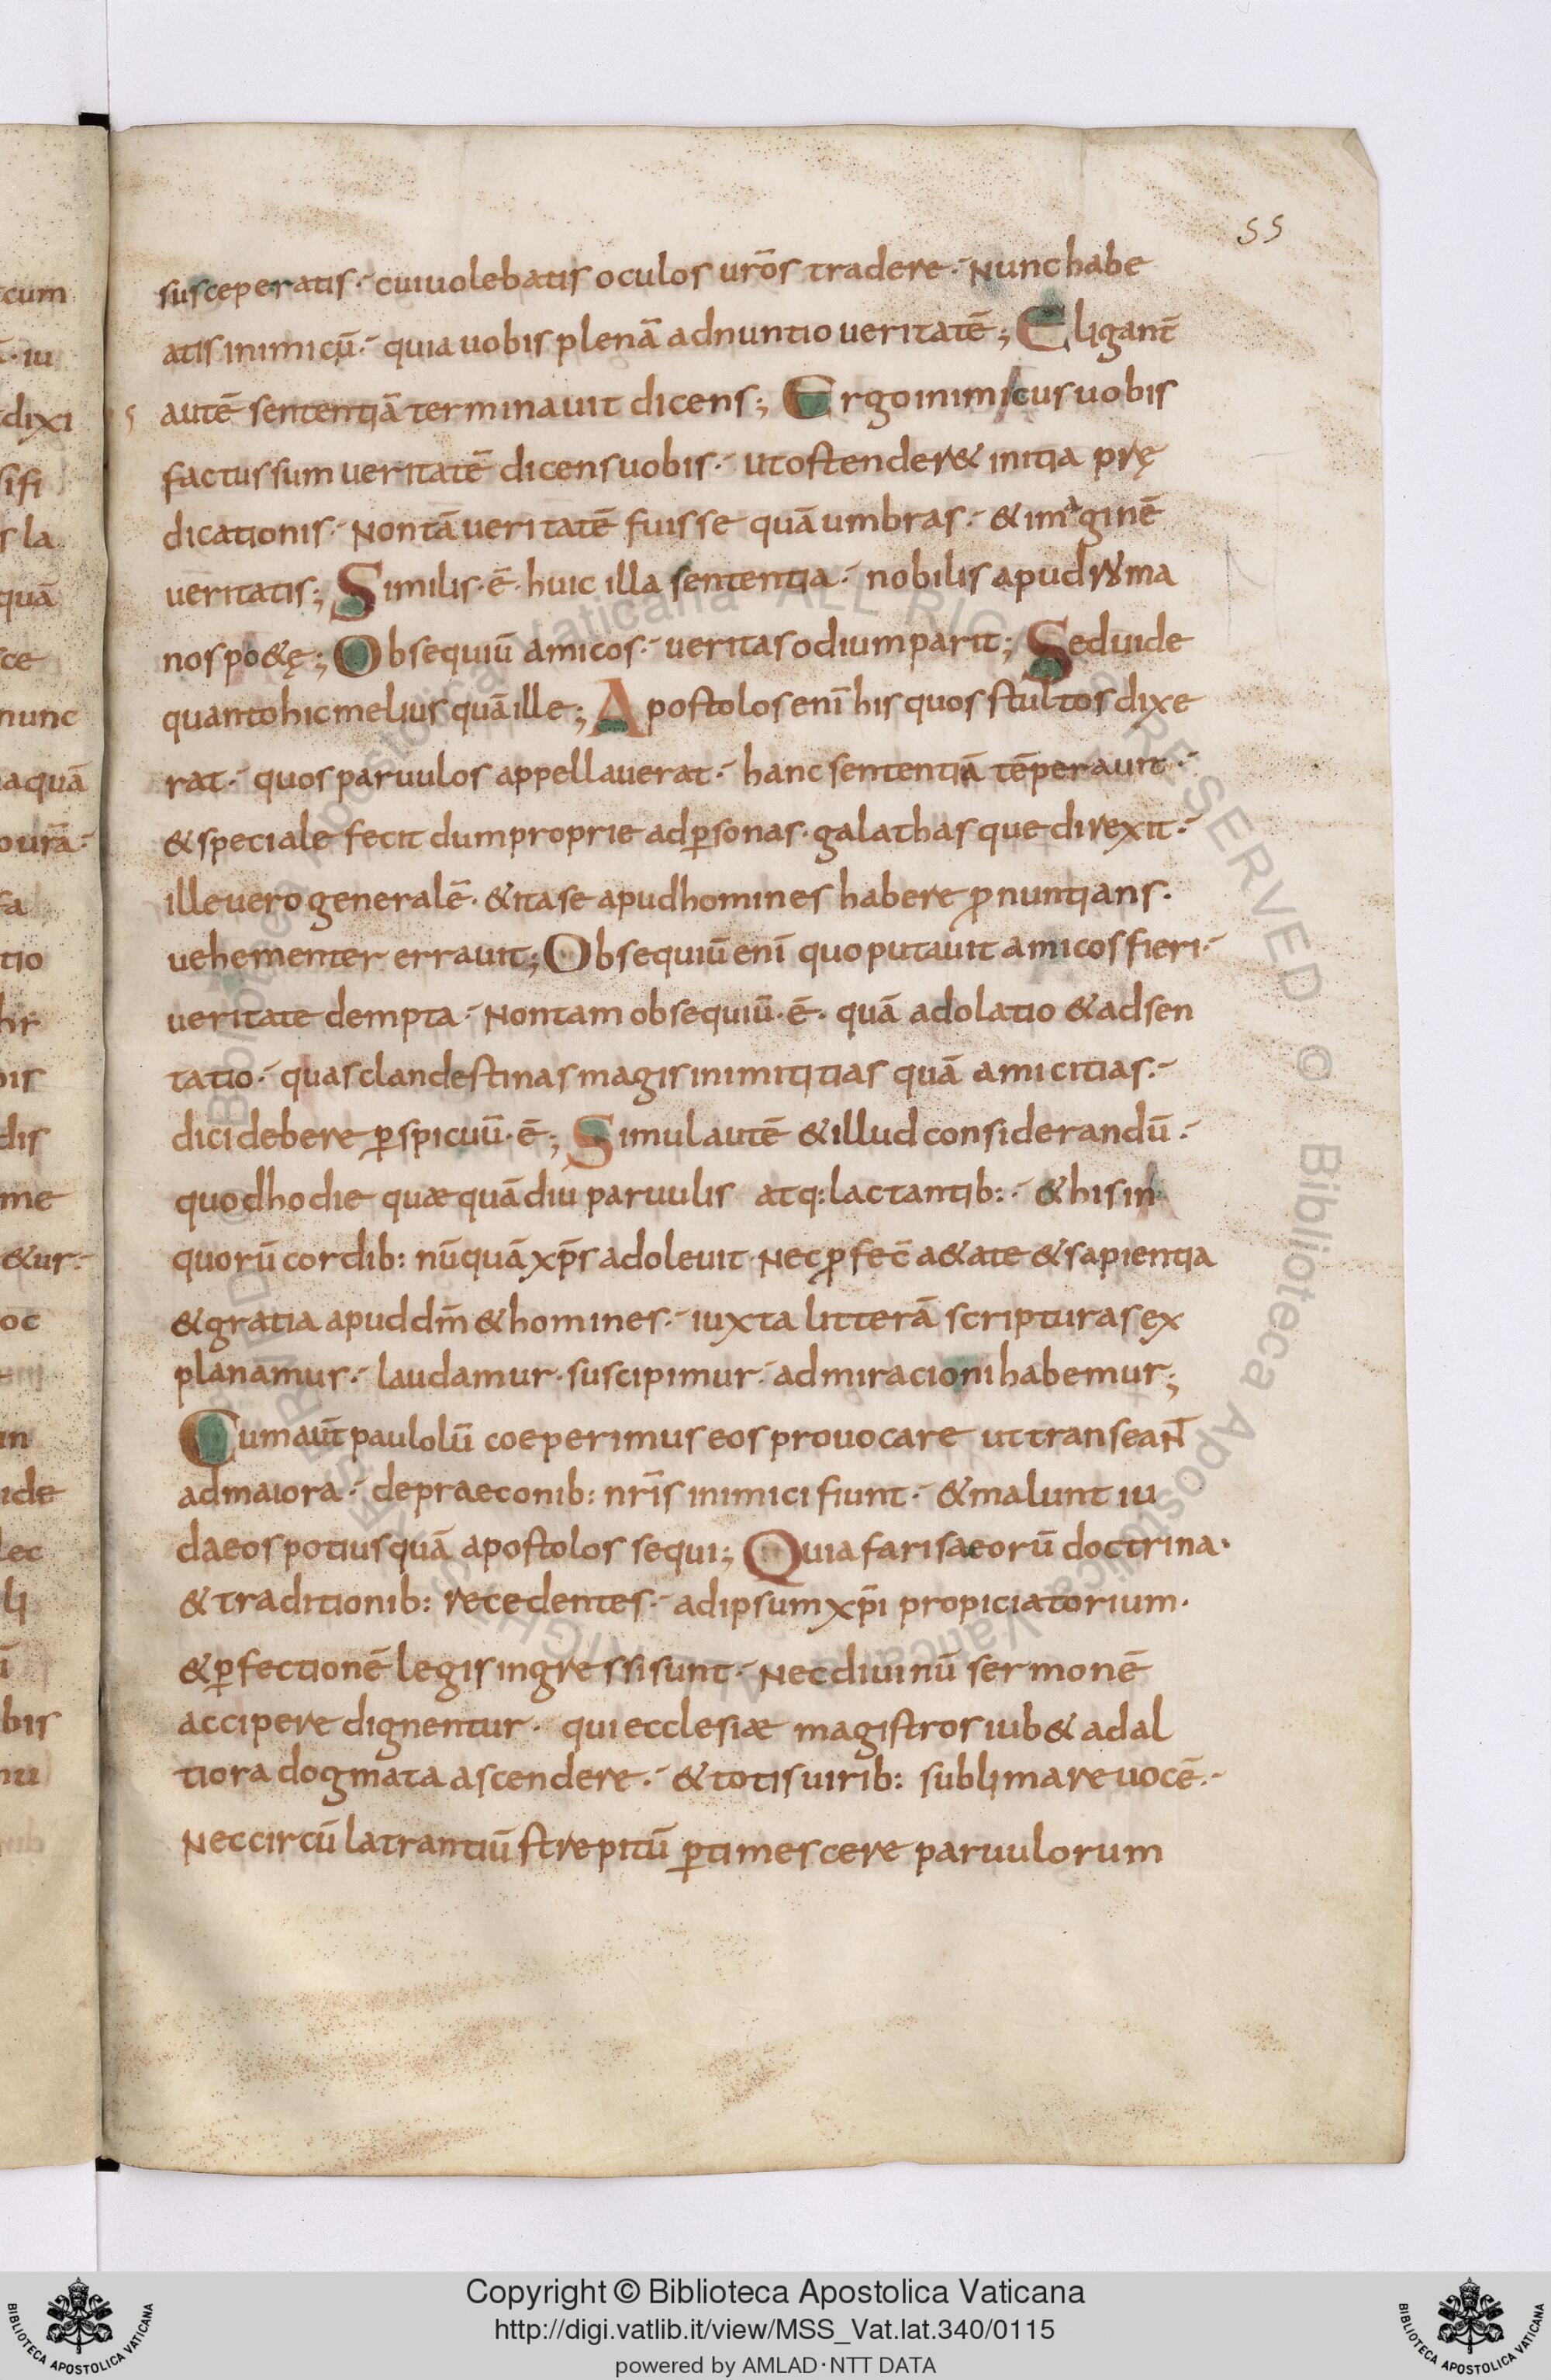 55
susceperatis· cuiuolebatis oculos ur̄os tradere· Nunc habe
atis inimicū· quia uobis plenā adnuntio ueritatē; Eligant̄
autē sententiā terminauit dicens; Ergo inimicus uobis
factus sum ueritatē dicens uobis· ut ostender& initia prę
dicationis· Non tā ueritatē fuisse quā umbras· & imaginē
ueritatis; Similis·ē·huic illa sententia· nobilis apud roma
nos po&ę; Obsequiū amicos· ueritas odium parit; Sed uide
quanto hic melius quā ille; Apostolos enī his quos stultos dixe
rat· quos paruulos appellauerat· hanc sententiā tēperauit·
& speciale fecit dum proprie ad ꝑsonas· galathasque direxit·
ille uero generalē· & ita se apud homines habere ꝓnuntians·
uehementer errauit; Obsequiū enī quo putauit amicos fieri·
ueritate dempta· Non tam obsequiū·ē· quā adolatio & adsen
tatio· quas clandestinas magis inimititias quā amicitias·
dici debere ꝑspicuū·ē; Simul autē & illud considerandū·
quod hodie quae quā diu paruulis atq: lactantib:· & his in
quorū cordib: nūquā xp̄s adoleuit· Nec ꝓfec̄ a&ate & sapientia
& gratia apud dm̄ & homines· iuxta litterā scripturas ex
planamur· laudamur· suscipimur· admiracioni habemur;
Cum aut̄ paulolū coeperimus eos prouocare ut transeant
ad maiora· de praeconib: nr̄is inimici fiunt· & malunt iu
daeos potius quā apostolos sequi; Quia farisaeorū doctrina·
& traditionib: recedentes· ad ipsum xp̄i propiciatorium·
& ꝑfectionē legis ingressi sunt· Nec diuinū sermonē
accipere dignentur· qui ecclesiae magistros iub& ad al
tiora dogmata ascendere· & totis uirib: sublimare uocē·
Nec circū latrantiū strepitū ꝑtimescere paruulorum
Copyright © Biblioteca Apostolica Vaticana
http://digi.vatlib.it/view/MSS_Vat.lat.340/0115
powered by AMLAD·NTT DATA